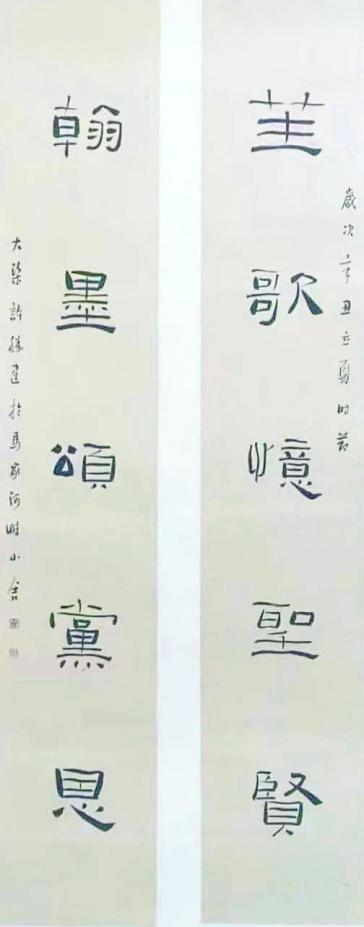 歲次辛丑立夏时节
笙歌憶聖賢
翰墨頌黨恩
大梁許建於馬家河畔小舍